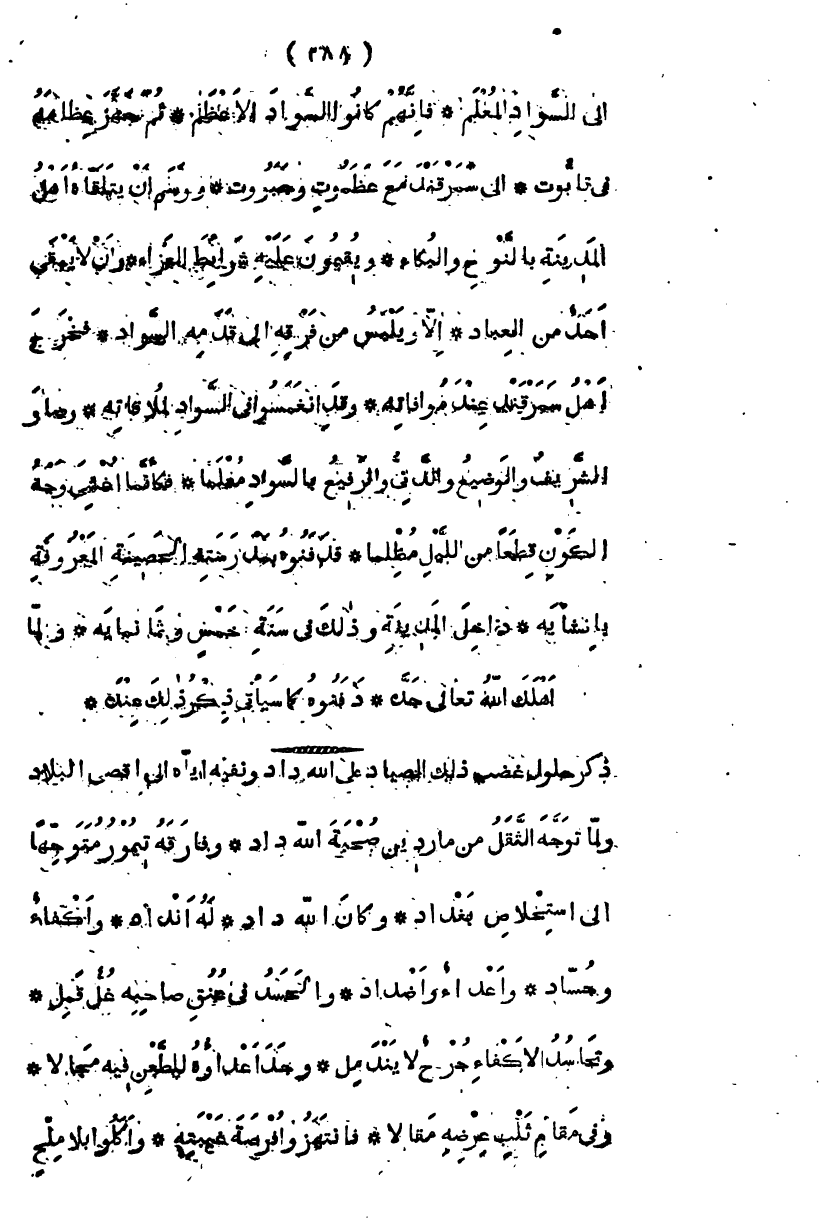 ( ٢٨٨ )
الى السَّوادِ المُعْلَمِ * فاِنَّهُم كانُوا السَّوادَ الاَعْظَم * ثُمَّ جَهَّزَ عِظامَهُ
فى تابُوت * الى سَمَرْقَنْدَ مَعَ عَظَمُوتٍ وجَبَرُوت * ورَسَمَ اَنْ يتلقّاهُ اَهْلُ
المَدِينَةِ بالنَّوْحِ والبُكاء * ويُقيمُونَ عَلَيْهِ شَرائِطَ العَزاء * واَنْ لا يَبْقَى
اَحَدٌ من العِباد * اِلّا ويَلْبَسُ من فَرْقِهِ الى قَدَمِهِ السَّواد * فخَرَجَ
اَهْلُ سَمَرْقَنْد عِنْدَ مُوافاتِه * وقَدِ انْغَمَسُوا فى السَّوادِ لمُلاقاتِه * وصارَ
الشَّرِيفُ والوَضِيعُ والدَّنِىُّ والرَّفِيعُ بالسَّوادِ مُعْلَما * فكاَنَّما اُغْشِىَ وَجْهُ
الكَوْنِ قِطَعًا من اللَّيْلِ مُظْلِما * فدَفَنُوهُ بمَدْرَسَتِهِ الحَصِينَةِ المَعْرُوفَةِ
باِنْشائِه * داخِلَ المَدِينَةِ وذٰلكَ فى سَنَةِ خَمْسٍ وثَمانمايَه * ولمّا
اَهْلَكَ اللّهُ تعالى جَدَّه * دَفَنُوهُ كما سَيَأْتى ذِكْرُ ذٰلِكَ عِنْدَه *
ذكر حلول غضب ذلك الصياد على الله داد ونفيه اياه الى اقصى البلاد
ولمّا تَوَجَّهَ الثَّقَلُ من مارِدِين صُحْبَةَ اللّه داد * وفارَقَهُ تِيمُورُ مُتَوَجِّهًا
الى استِخْلاصِ بَغْداد * وكانَ اللّه داد * لَهُ اَنْداد * واَكْفاءٌ
وحُسّاد * واَعْداءٌ واَضْداد * والحَسَدُ فى عُنُقِ صاحِبِه غُلٌّ قَمِل *
وتَحاسُدُ الاَكْفاءِ جُرْحٌ لا يَنْدَمِل * وجَدَ اَعْداؤُهُ للطَّعْنِ فيه مجالا *
وفى مَقامِ ثَلْبِ عِرْضِهِ مَقالا * فانتَهَزُوا فُرْصَةَ غَيْبَتِهِ * واَكَلُوا بلا مِلْحٍ